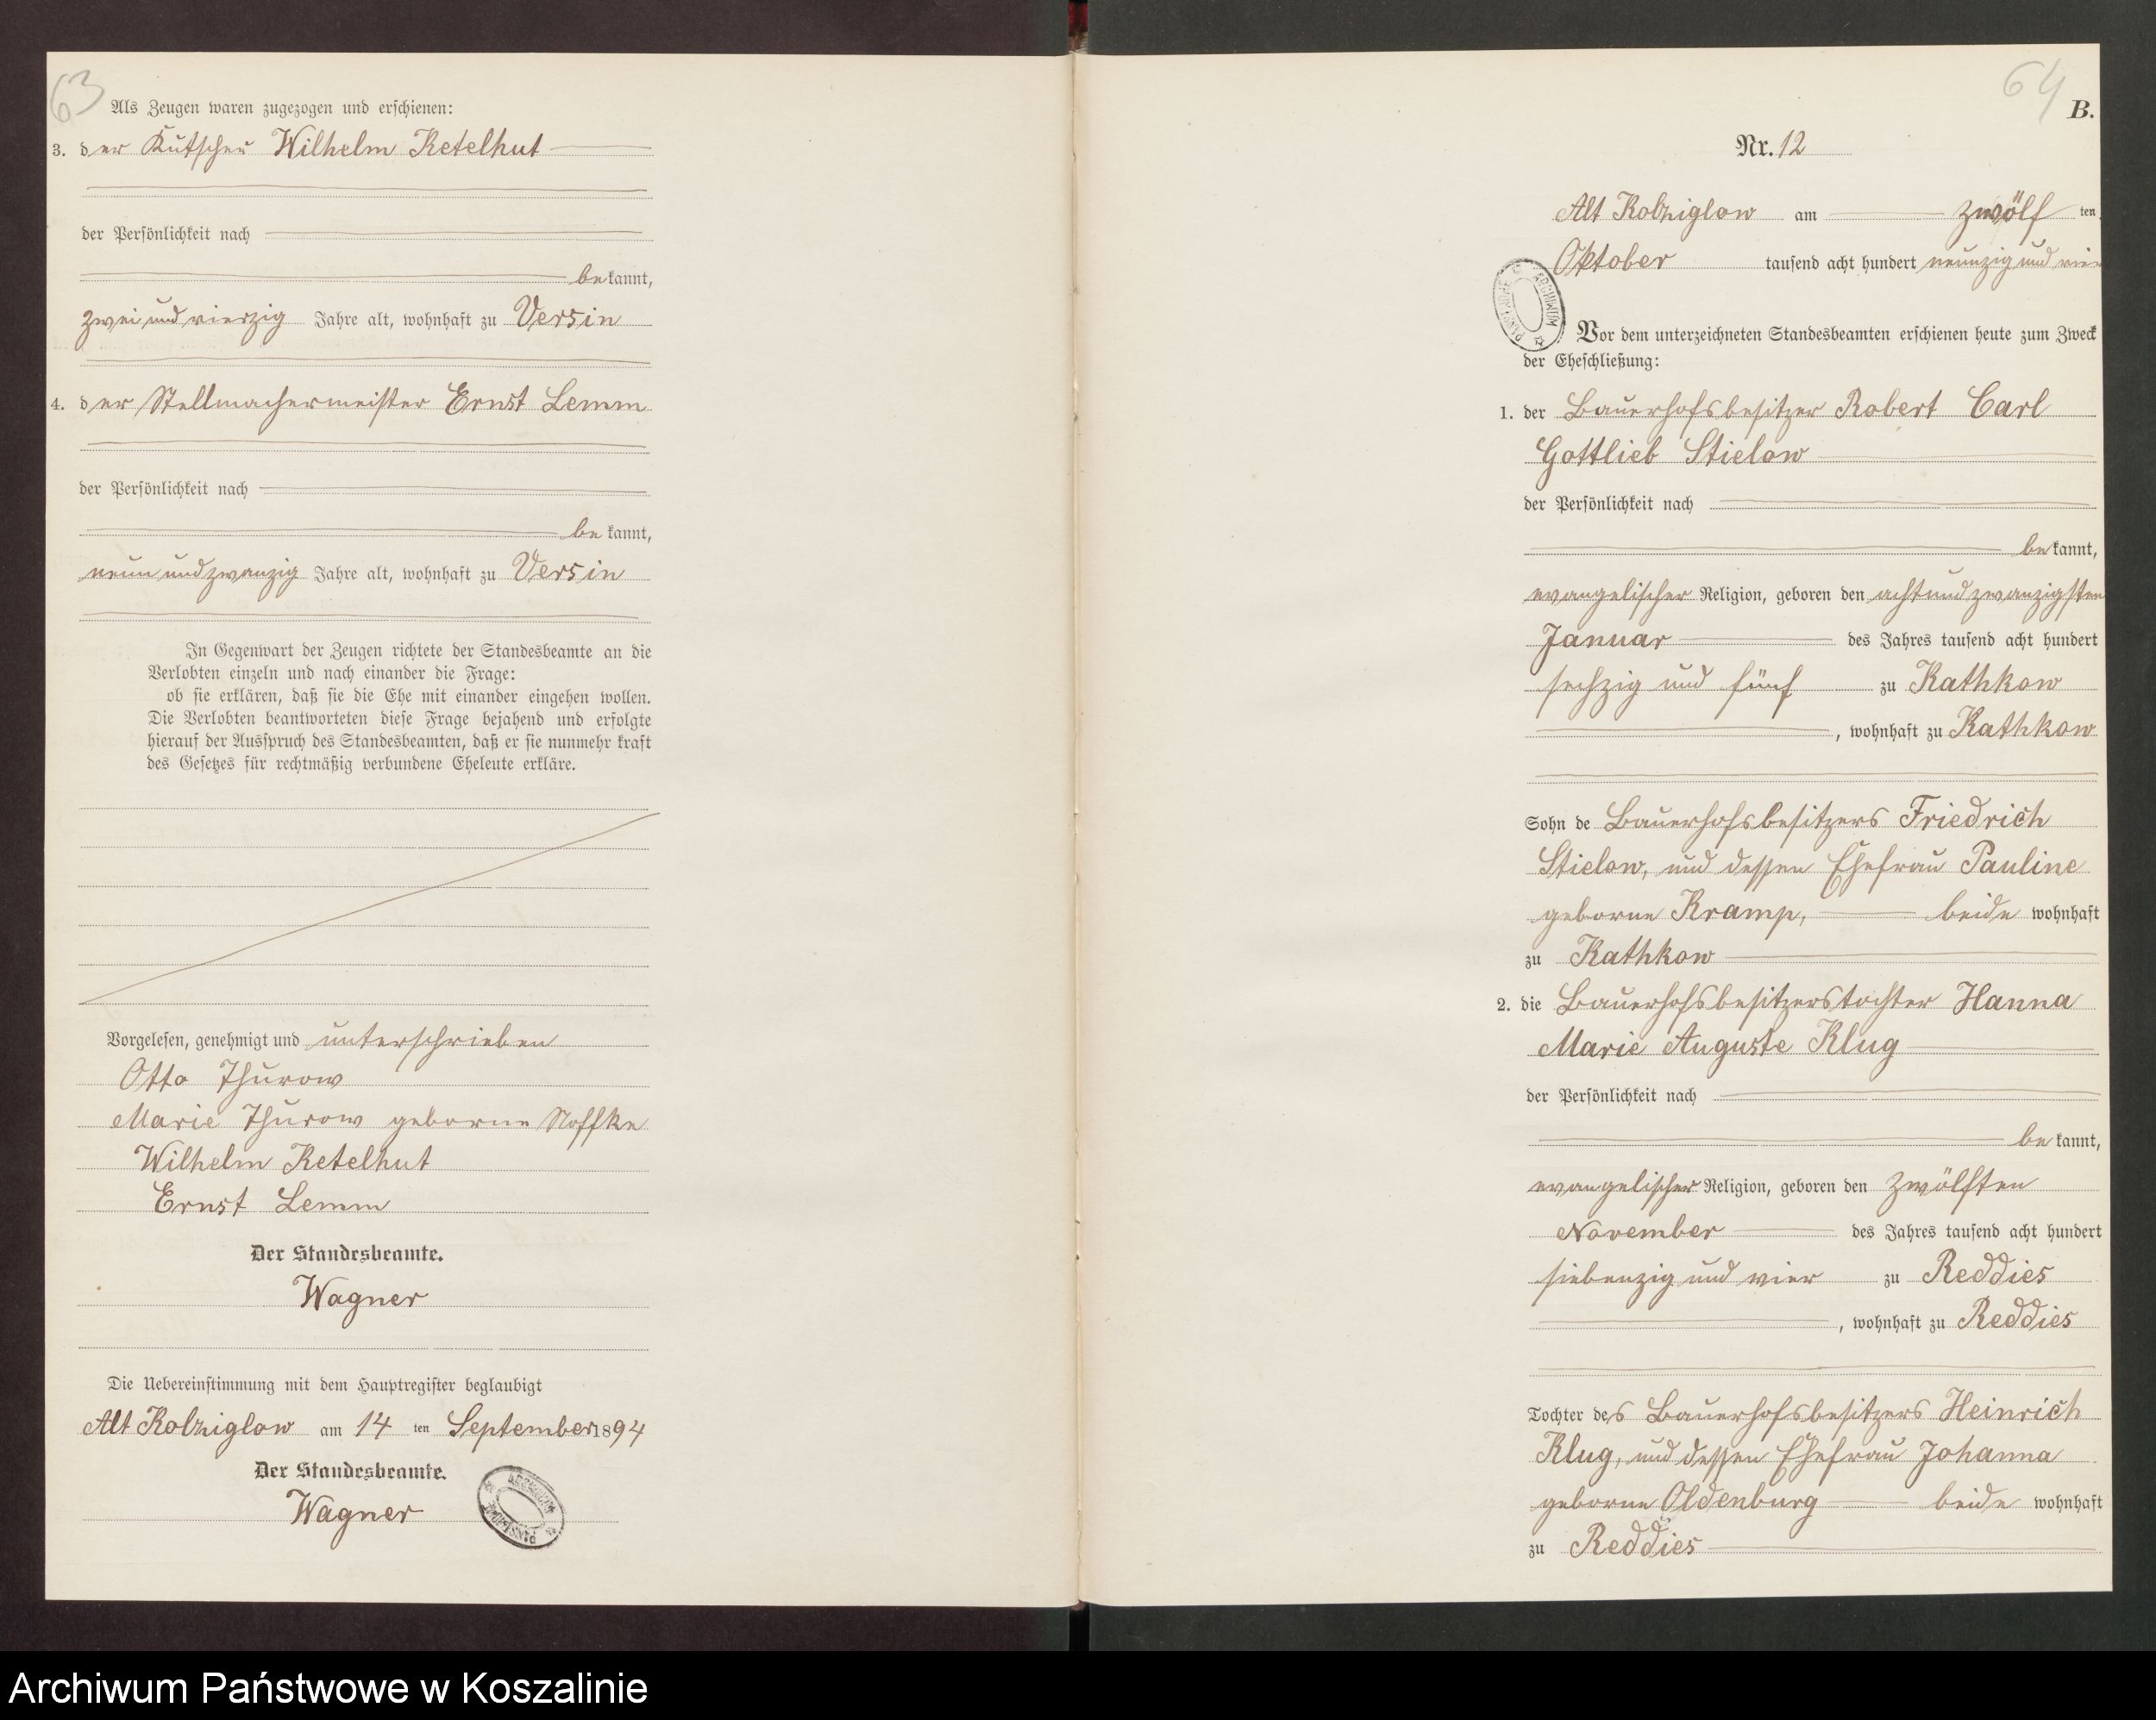 63
Als Zeugen waren zugezogen und erschienen:
3. der Kutscher Wilhelm Ketelhut
der Persönlichkeit nach
bekannt,
zwei und vierzig Jahre alt, wohnhaft zu Versin
4. der Stellmachermeister Ernst Lemm
der Persönlichkeit nach
bekannt,
neun und zwanzig Jahre alt, wohnhaft zu Versin
In Gegenwart der Zeugen richtete der Standesbeamte an die
Verlobten einzeln und nach einander die Frage:
ob sie erklären, daß sie die Ehe mit einander eingehen wollen.
Die Verlobten beantworteten diese Frage bejahend und erfolgte
hierauf der Ausspruch des Standesbeamten, daß er sie nunmehr kraft
des Gesetzes für rechtmäßig verbundene Eheleute erkläre.
Vorgelesen, genehmigt und unterschrieben
Otto Thurow
Marie Thurow geborne Noffke
Wilhelm Ketelhut
Ernst Lemm
Der Standesbeamte.
Wagner
Die Uebereinstimmung mit dem Hauptregister beglaubigt
Alt Kolziglow am 14 ten September 1894
Der Standesbeamte.
Wagner
64
B.
Nr. 12
Alt Kolziglow am zwölf ten
Oktober tausend acht hundert neunzig und vier
Vor dem unterzeichneten Standesbeamten erschienen heute zum Zweck
der Eheschließung:
1. der Bauerhofsbesitzer Robert Carl
Gottlieb Stielow
der Persönlichkeit nach
bekannt,
evangelischer Religion, geboren den achtund zwanzigsten
Januar des Jahres tausend acht hundert
sechzig und fünf zu Kathkow
, wohnhaft zu Kathkow
Sohn de Bauerhofsbesitzers Friedrich
Stielow, und dessen Ehefrau Pauline
geborne Kramp, beide wohnhaft
zu Kathkow
2. die Bauerhofsbesitzerstochter Hanna
Marie Auguste Klug
der Persönlichkeit nach
bekannt,
evangelischer Religion, geboren den zwölften
November des Jahres tausend acht hundert
siebenzig und vier zu Reddies
, wohnhaft zu Reddies
Tochter des Bauerhofsbesitzers Heinrich
Klug, und dessen Ehefrau Johanna
geborne Oldenburg beide wohnhaft
zu Reddies
Archiwum Państwowe w Koszalinie